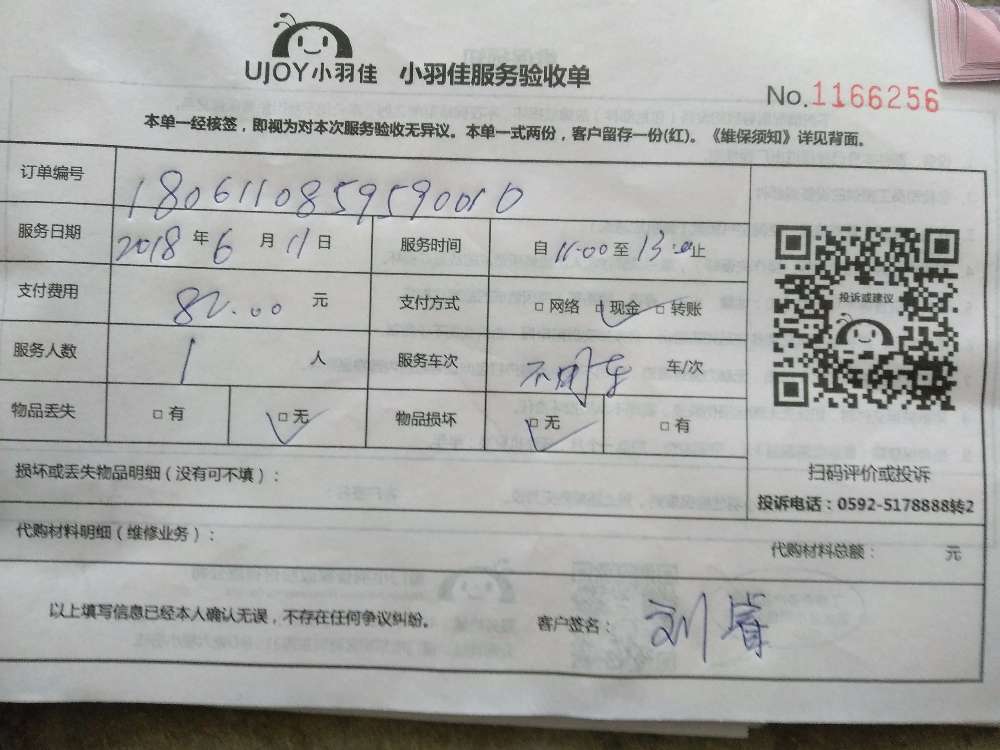 UJOY小羽佳 小羽佳服务验收单
No.1166256
本单一经核签，即视为对本次服务验收无异议。本单一式两份，客户留存一份(红)。《维保须知》详见背面。
订单编号 1806110859590010
服务日期 2018年6月11日 服务时间 自11:00至13:00止
支付费用 82.00元 支付方式 □网络 □现金 □转账
投诉或建议
服务人数 1人 服务车次 不用车 车/次
物品丢失 □有 □无 物品损坏 □无 □有
损坏或丢失物品明细（没有可不填）：
扫码评价或投诉
投诉电话：0592-5178888转2
代购材料明细（维修业务）：
代购材料总额： 元
以上填写信息已经本人确认无误，不存在任何争议纠纷。 客户签名：刘睿